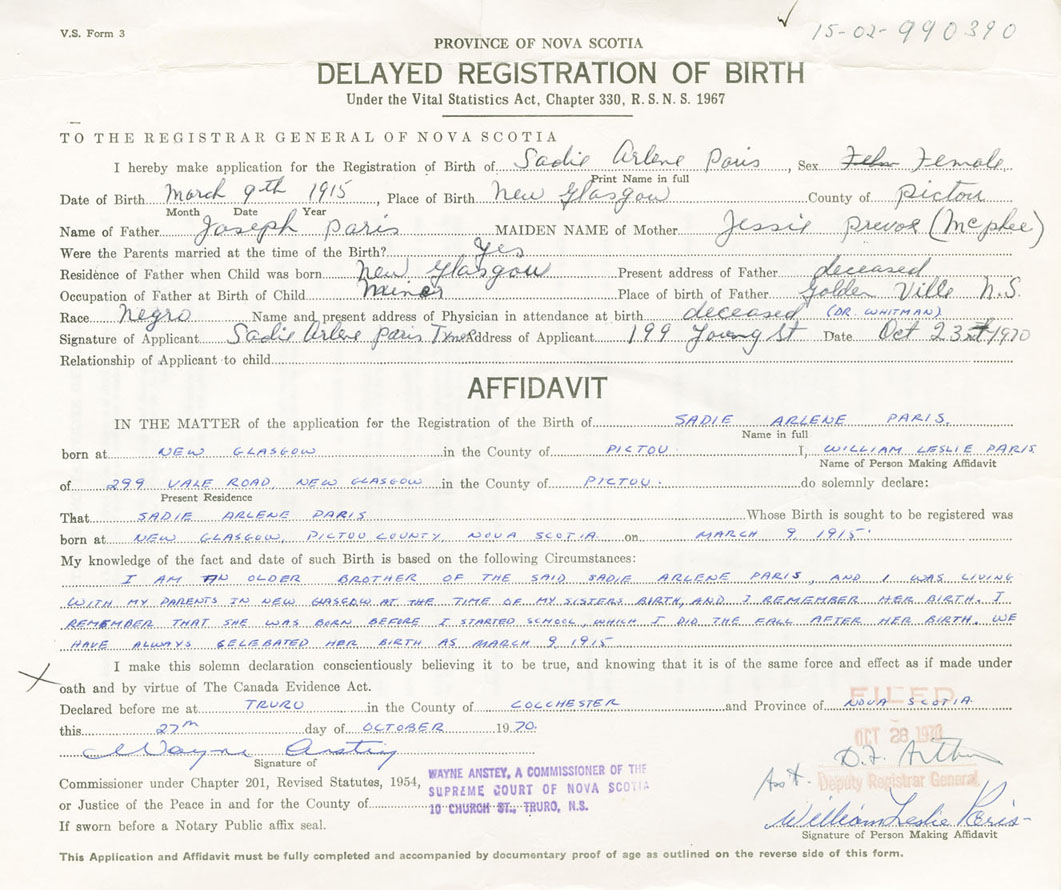 V.S. Form 3
15-02-990390
PROVINCE OF NOVA SCOTIA
DELAYED REGISTRATION OF BIRTH
Under the Vital Statistics Act, Chapter 330, R. S. N. S. 1967
TO THE REGISTRAR GENERAL OF NOVA SCOTIA
I hereby make application for the Registration of Birth of Sadie Arlene Paris, Sex Female
Print Name in full
Date of Birth March 9th 1915, Place of Birth New Glasgow County of Pictou
Month Date Year
Name of Father Joseph Paris MAIDEN NAME of Mother Jessie Prevoe (Mcphee)
Were the Parents married at the time of the Birth? Yes
Residence of Father when Child was born New Glasgow Present address of Father deceased
Occupation of Father at Birth of Child miner Place of birth of Father Golden Ville N.S.
Race negro Name and present address of Physician in attendance at birth deceased (DR. WHITMAN)
Signature of Applicant Sadie Arlene Paris Address of Applicant 199 Young St Date Oct 23rd 1970
Relationship of Applicant to child
AFFIDAVIT
IN THE MATTER of the application for the Registration of the Birth of SADIE ARLENE PARIS.
Name in full
born at NEW GLASGOW in the County of PICTOU I, WILLIAM LESLIE PARIS
Name of Person Making Affidavit
of 299 VALE ROAD, NEW GLASGOW in the County of PICTOU. do solemnly declare:
Present Residence
That SADIE ARLENE PARIS Whose Birth is sought to be registered was
born at NEW GLASGOW, PICTOU COUNTY, NOVA SCOTIA on MARCH 9 1915.
My knowledge of the fact and date of such Birth is based on the following Circumstances:
I AM AN OLDER BROTHER OF THE SAID SADIE ARLENE PARIS, AND I WAS LIVING
WITH MY PARENTS IN NEW GLASGOW AT THE TIME OF MY SISTERS BIRTH, AND I REMEMBER HER BIRTH. I
REMEMBER THAT SHE WAS BORN BEFORE I STARTED SCHOOL, WHICH I DID THE FALL AFTER HER BIRTH. WE
HAVE ALWAYS CELEBATED HER BIRTH AS MARCH 9 1915
I make this solemn declaration conscientiously believing it to be true, and knowing that it is of the same force and effect as if made under
oath and by virtue of The Canada Evidence Act.
FILED
Declared before me at TRURO in the County of COLCHESTER and Province of NOVA SCOTIA.
this 27TH day of OCTOBER 1970.
OCT 28 1970
Wayne Anstey
Signature of
Asst. Deputy Registrar General
Commissioner under Chapter 201, Revised Statutes, 1954,
or Justice of the Peace in and for the County of
WAYNE ANSTEY, A COMMISSIONER OF THE
SUPREME COURT OF NOVA SCOTIA
10 CHURCH ST., TRURO, N.S.
William Leslie Paris
Signature of Person Making Affidavit
If sworn before a Notary Public affix seal.
This Application and Affidavit must be fully completed and accompanied by documentary proof of age as outlined on the reverse side of this form.